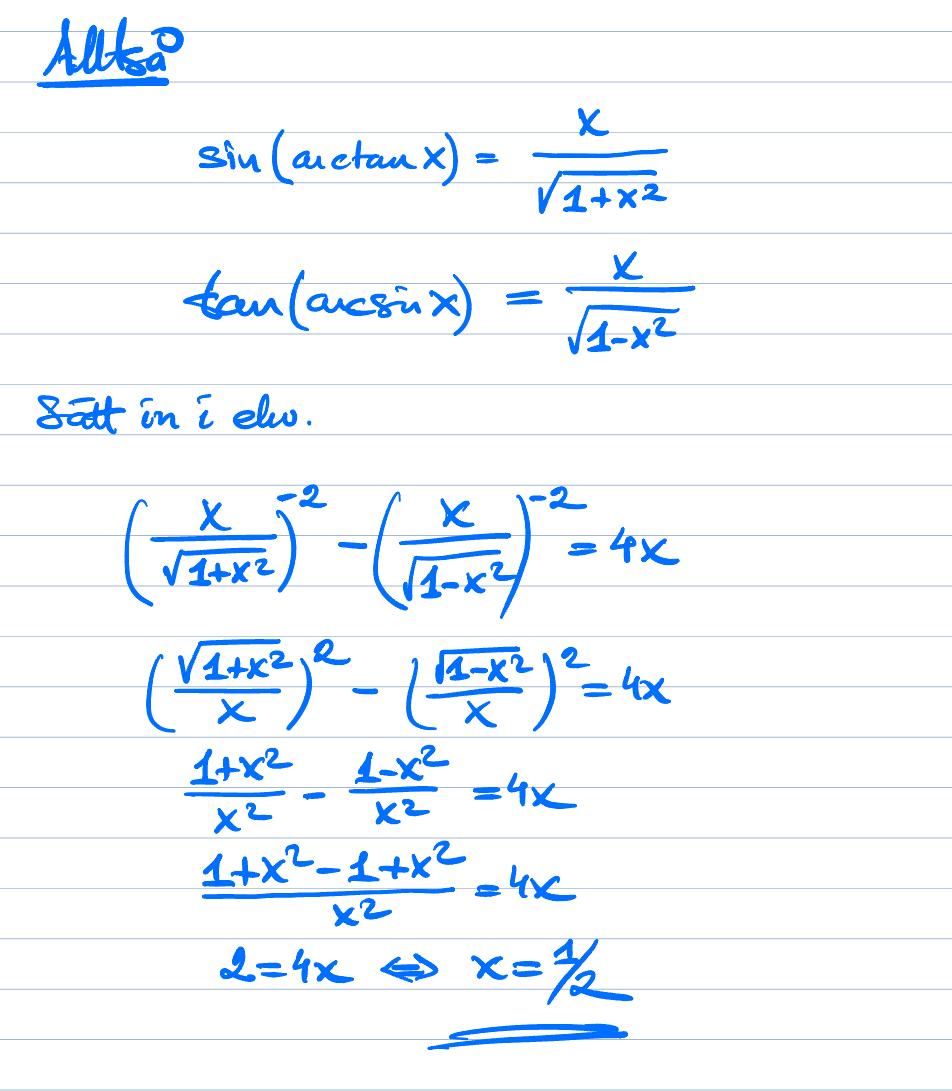 Alltså
sin(arctan x) = x/√(1+x²)
tan(arcsin x) = x/√(1-x²)
Sätt in i ekv.
(x/√(1+x²))⁻² - (x/√(1-x²))⁻² = 4x
(√(1+x²)/x)² - (√(1-x²)/x)² = 4x
(1+x²)/x² - (1-x²)/x² = 4x
(1+x²-1+x²)/x² = 4x
2=4x ⇔ x=1/2